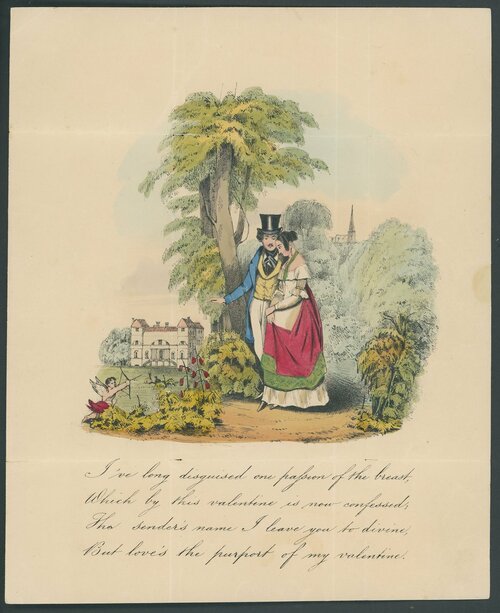 I've long disguised one passion of the breast,
Which by this valentine is now confessed;
The sender's name I leave you to divine,
But love's the purport of my valentine.